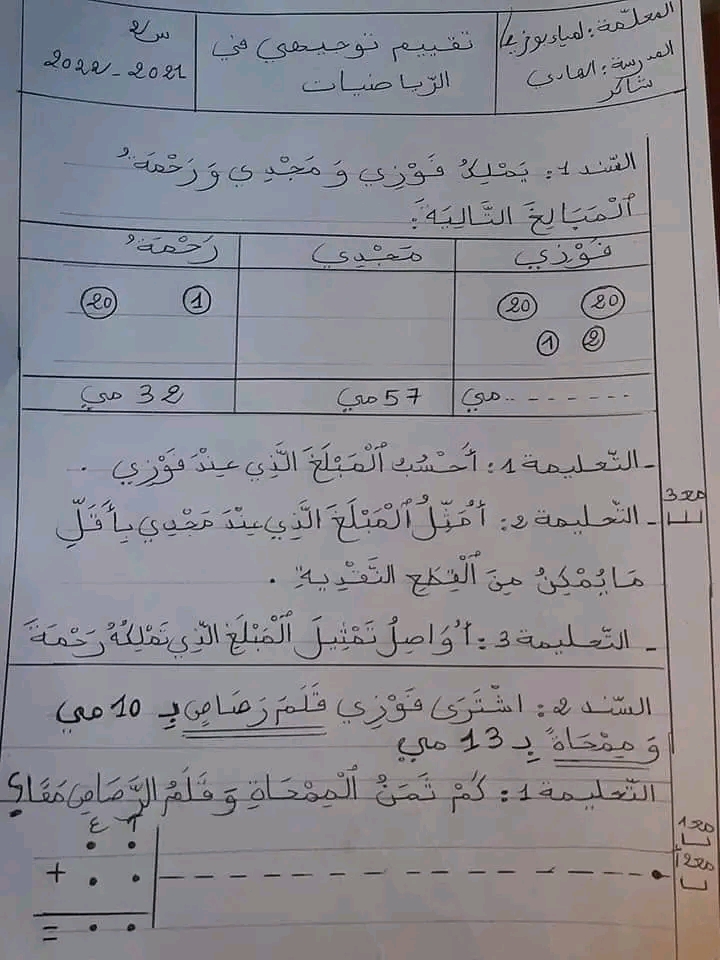 المعلّمة: لمياء بوزيد
المدرسة: الهادي
شاكر
تقييم توجيهي في
الرّياضيات
س2
2021-2022
السّند 1: يَمْلِكُ فَوْزِي وَ مَجْدِي وَ رَحْمَةُ
اَلْمَبَالِغَ التَّالِيَةَ:
فَوْزِي مَجْدِي رَحْمَةُ
20 20 1 20
2 1
........ مي 57 مي 32 مي
- التّعليمة 1: أَحْسُبُ اَلْمَبْلَغَ الَّذِي عِنْدَ فَوْزِي .
مع3
- التّعليمة 2: أُمَثِّلُ اَلْمَبْلَغَ الَّذِي عِنْدَ مَجْدِي بِأَقَلِّ
مَا يُمْكِنُ مِنَ اَلْقِطَعِ النَّقْدِيةِ .
- التّعليمة 3: أُوَاصِلُ تَمْثِيلَ اَلْمَبْلَغِ الَّذِي تَمْلِكُهُ رَحْمَةُ
السّند 2: اشْتَرَى فَوْزِي قَلَمَ رَصَاصٍ بِـ 10 مي
وَ مِمْحَاةً بِـ 13 مي
التّعليمة 1: كَمْ ثَمَنُ اَلْمِمْحَاةِ وَ قَلَمُ الرَّصَاصِ مَعًا؟
مع1
آ ع
مع2
+
=